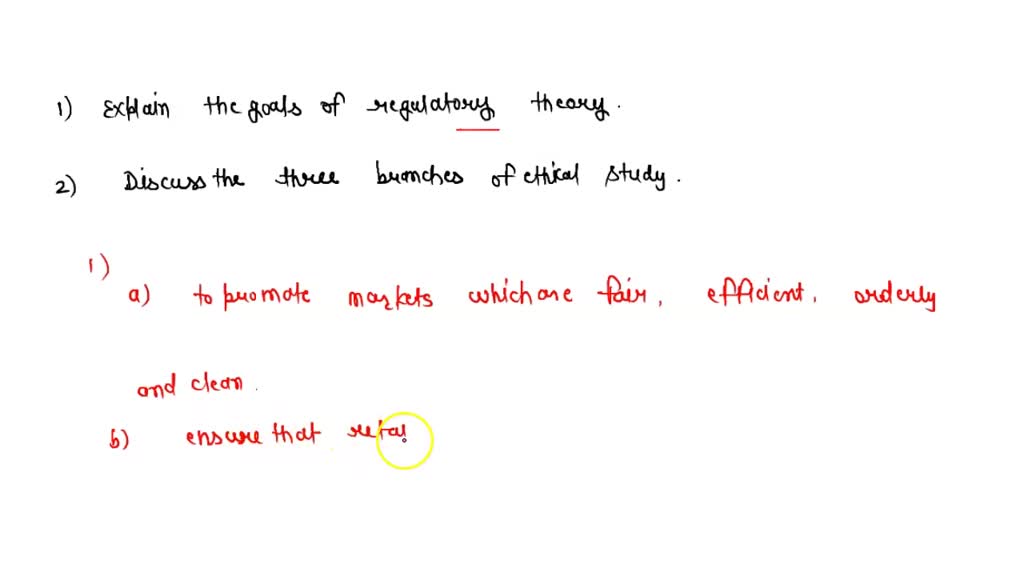 1) Explain the goals of regulatory theory.
2) Discuss the three branches of ethical study.
1)
a) to promote markets which are fair, efficient, orderly
and clean.
b) ensure that retai